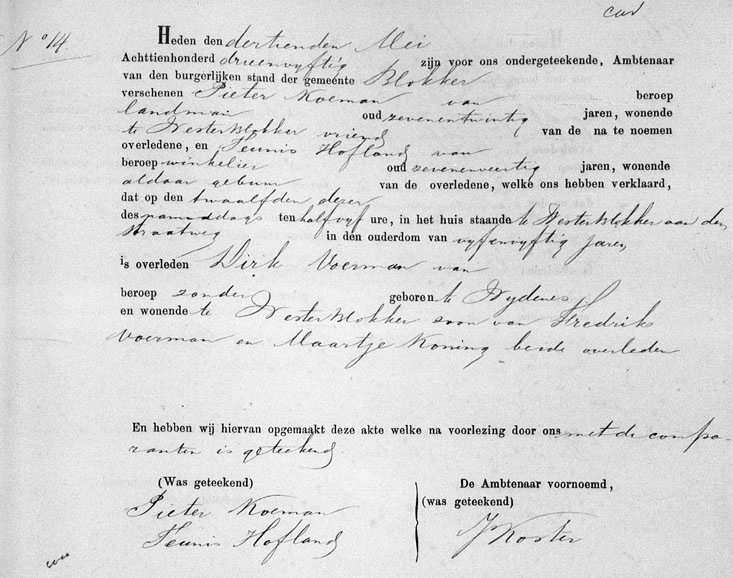 cov
No 14.
Heden den dertienden Mei
Achttienhonderd drieenvyftig zijn voor ons ondergeteekende, Ambtenaar
van den burgerlijken stand der gemeente Blokker
verschenen Pieter Koeman van beroep
landman oud zevenentwintig jaren, wonende
te Westerblokker vriend van de na te noemen
overledene, en Teunis Hofland van
beroep winkelier oud zevenenveertig jaren, wonende
aldaar gebuur van de overledene, welke ons hebben verklaard,
dat op den twaalfden dezer
des namiddags ten half vyf ure, in het huis staande te Westerblokker aan den
straatweg in den ouderdom van vyfenvyftig jaren
is overleden Dirk Voerman van
beroep zonder geboren te Wydenes
en wonende te Westerblokker zoon van Fredrik
Voerman en Maartje Koning beide overleden
En hebben wij hiervan opgemaakt deze akte welke na voorlezing door ons met de compa-
ranten is geteekend
(Was geteekend) De Ambtenaar voornoemd,
(was geteekend)
Pieter Koeman
Teunis Hofland
J Koster